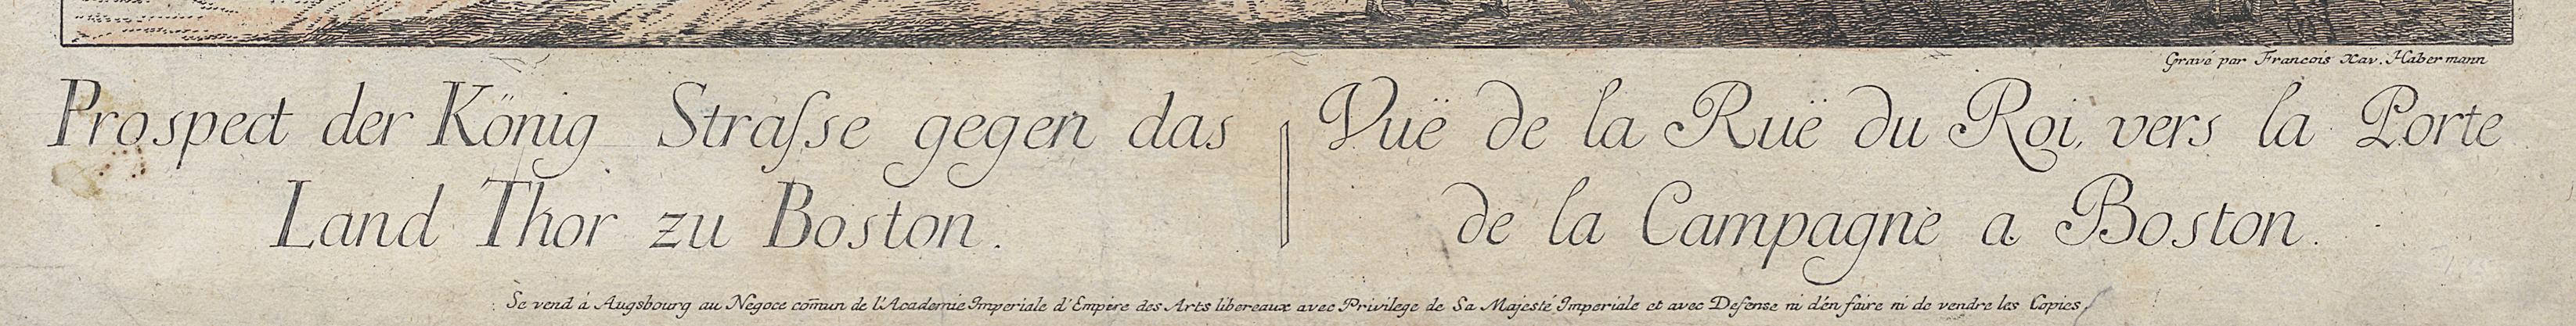 Gravé par Francois Xav. Habermann
Prospect der König Straſse gegen das
Land Thor zu Boston.
Vuë de la Ruë du Roi, vers la Porte
de la Campagne a Boston.
Se vend á Augsbourg au Negoce com̄un de l'Academie Imperiale d'Empire des Arts libereaux avec Privilege de Sa Majesté Imperiale et avec Defense ni d'én faire ni de vendre les Copies.